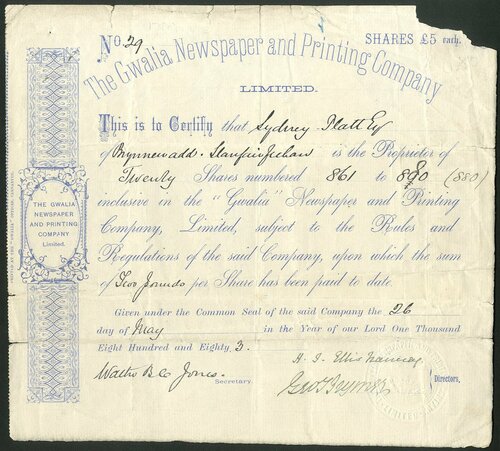 No. 29
SHARES £5 each.
The Gwalia Newspaper and Printing Company
LIMITED.
This is to Certify that Sydney Platt Esq
of Brynnewadd. Llanfairfechan is the Proprietor
Twenty Shares numbered 861 to 880 (880)
inclusive in the "Gwalia" Newspaper and Printing
Company, Limited, subject to the Rules and
Regulations of the said Company, upon which the sum
of Two pounds per Share has been paid to date.
Given under the Common Seal of the said Company the 26
day of May in the Year of our Lord One Thousand
Eight Hundred and Eighty 3.
H. J. Ellis Nanney
Walter B. C. Jones.
Secretary.
Directors.
THE GWALIA
NEWSPAPER
AND PRINTING
COMPANY
Limited.